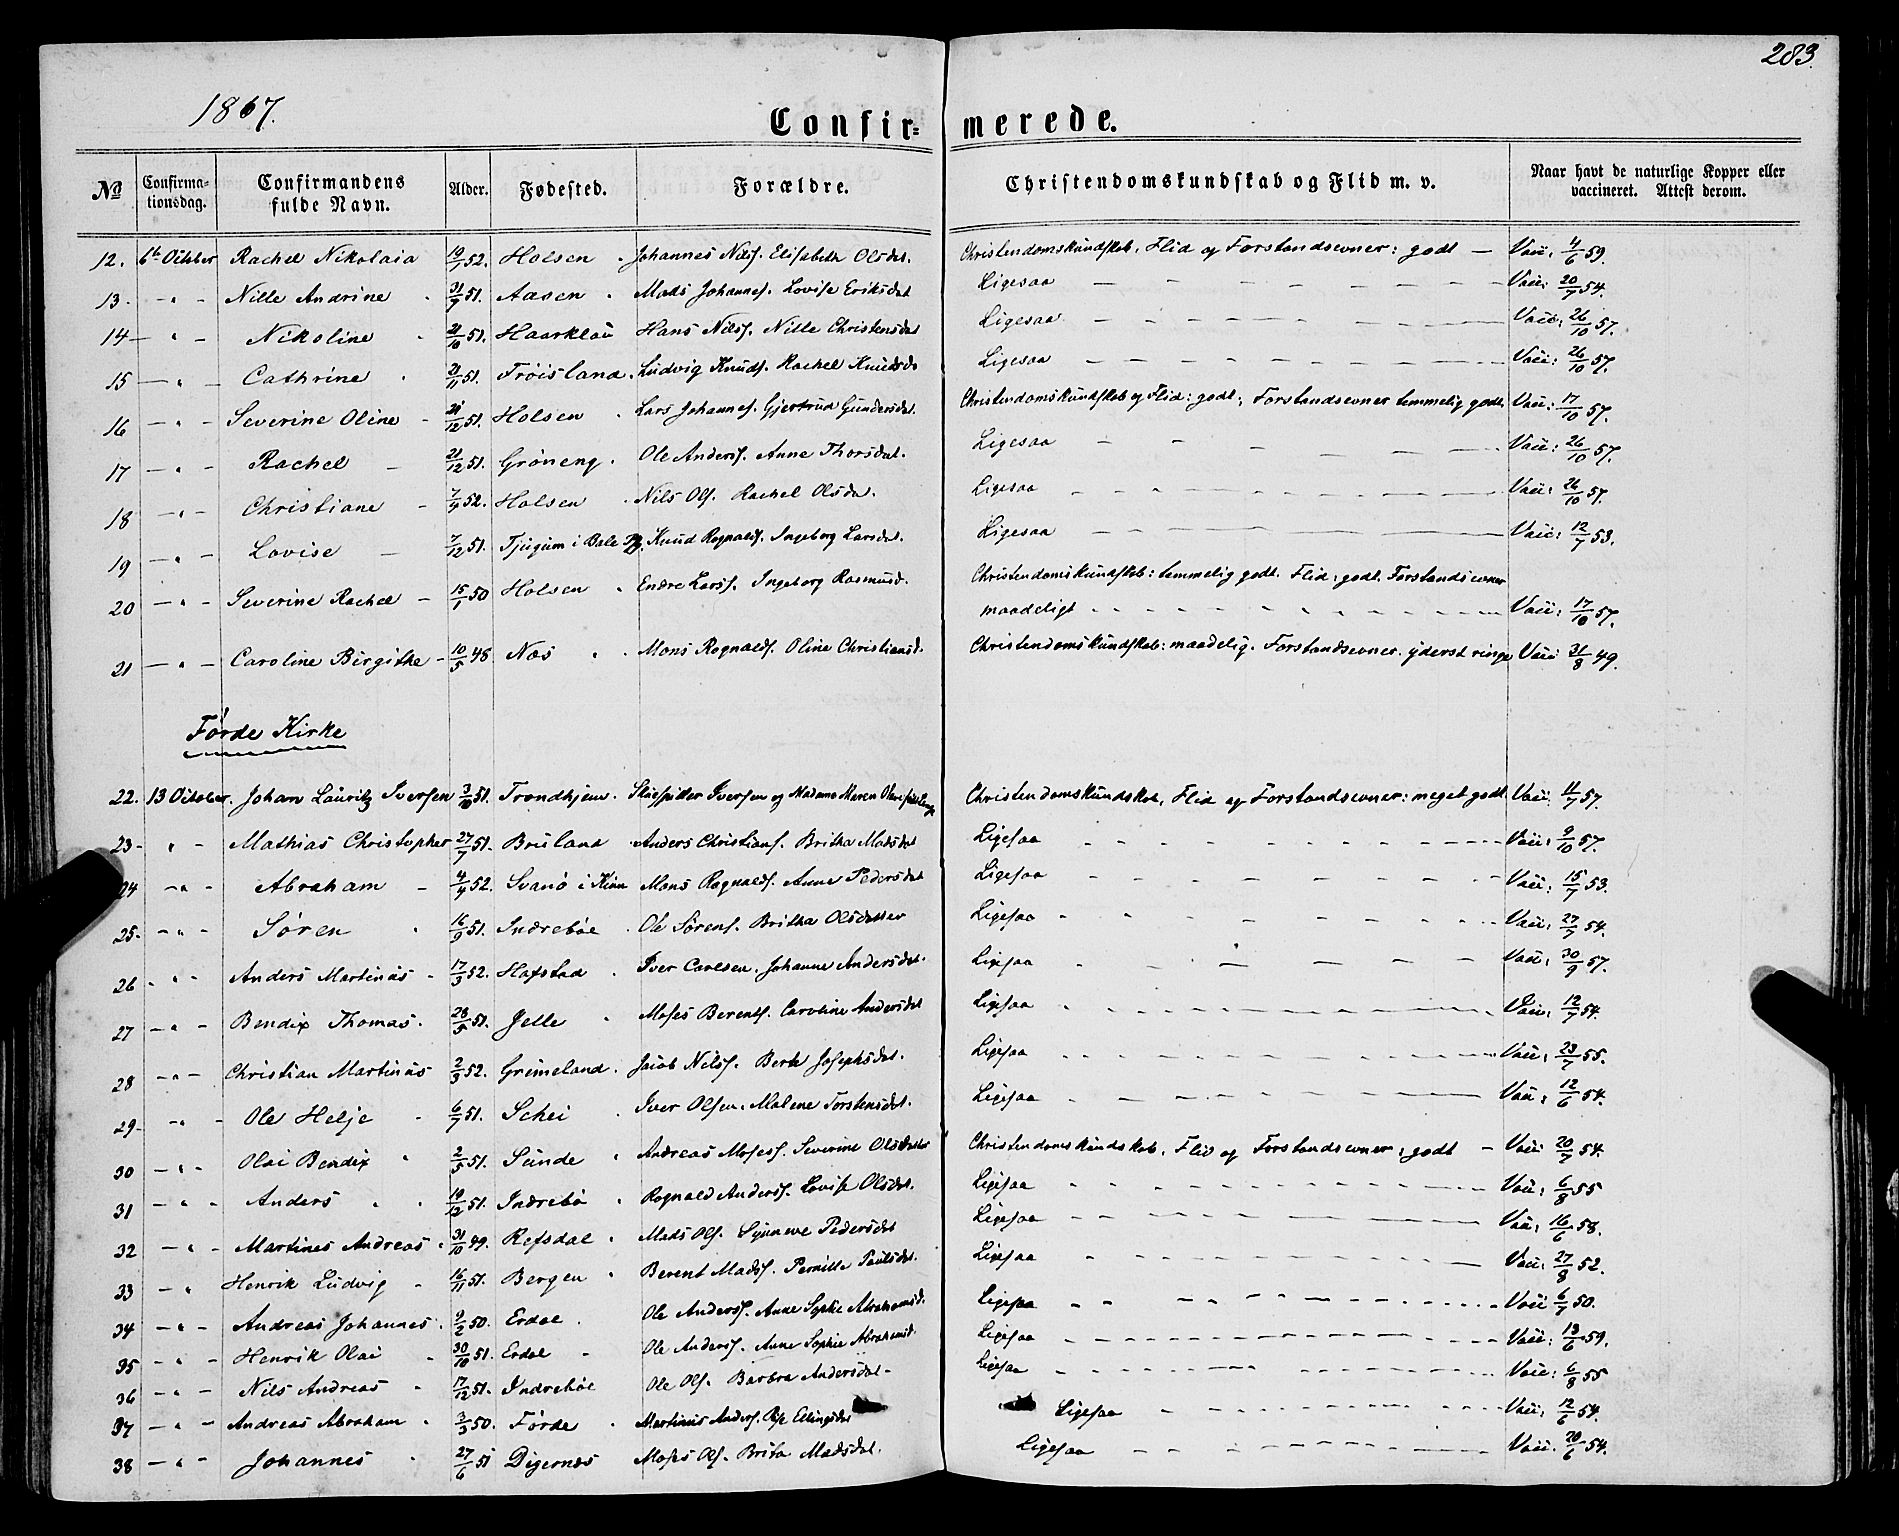 283.
1867.
Confir= merede.
No Confirma-tionsdag. Confirmandens fulde Navn. Alder. Fødested. Forældre. Christendomskundskab og Flid m. v. Naar havt de naturlige Kopper eller vaccineret. Attest derom.
12. 6te October Rachel Nikolaia 19/1 52. Holsen . Johannes Nilss. Elisabeth Olsdat. Christendomskundskab, Flid og Forstandsevner: godt — Vacc: 4/6 59.
13. - " - Nille Andrine . 31/7 51. Aasen . Mads Johanness. Lovise Eriksdat Ligesaa - - - Vacc: 20/7 54.
14 — " - Nikoline . 21/10 51. Haarklau Hans Nilss. Nille Christensdat Ligesaa - - - Vacc: 26/10 57.
15 — " - Cathrine . 21/11 51. Frøisland. Ludvig Knuds. Rachel Knudsd. Ligesaa - - - Vacc: 26/10 57.
16 — " - Severine Oline - 21/12 51. Holsen . Lars Johannes. Gjertrud Gundersdat. Christendomskundskab og Flid: godt, Forstandsevner temmelig godt. Vacc: 17/10 57.
17 — " - Rachel - 21/12 51. Grøneng . Ole Anderss. Anne Thorsdat. Ligesaa - - - Vacc: 26/10 57.
18 — " - Christiane - 7/4 52. Holsen . Nils Ols. Rachel Olsda. Ligesaa - - - Vacc: 26/10 57.
19 — " - Lovise - 7/12 51. Tjugum i Bale Pgj. Knud Rognalds. Ingeborg Larsdat. Ligesaa - - - Vacc: 12/7 53.
20 — " - Severine Rachel - 15/1 50 Holsen . Endre Larss. Ingeborg Rasmusd. Christendomskundskab: temmelig godt. Flid: godt. Forstandsevner
maadeligt - - - Vacc: 17/10 57.
21 — " - Caroline Birgithe - 10/5 48 Næs . . Mons Rognalds. Oline Christiansd. Christendomskundskab: maadelig. Forstandsevner. yderst ringe Vacc 31/8 49.
Førde Kirke
22. 13 October. Johan Lauritz Iversen 3/10 51. Trondhjem. Skuespiller Iversen og Madame Maren Christendomskundskab, Flid og Forstandsevner: meget godt. Vacc. 11/7 57.
23 - " - Mathias Christopher 27/7 51. Bruland . Anders Christians. Britha Madsdat Ligesaa - - - Vacc: 9/10 57.
24 - " - Abraham - 4/4 52. Svanø i Kinn Mons Rognalds. Anne Pedersdat Ligesaa - - - Vacc: 15/7 53.
25 - " - Søren . 16/9 51. Indrebøe . Ole Sørens. Britha Olsdatter Ligesaa - - - Vacc: 27/7 54.
26 - " - Anders Martinus - 17/3 52. Hafstad . Iver Carlsen. Johanne Andersdat. Ligesaa - - - Vacc: 30/9 57.
27 - " - Bendix Thomas. 28/5 51. Jelle . Moses Berents. Caroline Andersdat Ligesaa - - - Vacc: 12/7 54.
28 - " - Christian Martinus 2/3 52. Grimeland. Jacob Nilss. Berte Josephsdat. Ligesaa - - - Vacc: 23/7 55.
29 - " - Ole Helje - 6/7 51. Schei . Iver Olsen. Malene Torstensdat. Ligesaa - - - Vacc: 12/6 54.
30 - " - Olai Bendix . 2/5 51. Sunde . Andreas Moses. Severine Olsdatter Christendomskundskab, Flid og Forstandsevner: godt - Vacc 20/7 54.
31 - " - Anders . . 19/12 51. Indrebø . Rognald Anderss. Lovise Olsdat. Ligesaa - - - Vacc: 6/8 55
32 - " - Martines Andreas . 31/10 49. Refsdal . Mads Ols. Synneve Pedersdat Ligesaa - - - Vacc: 16/6 58.
33 - " Henrik Ludvig - 16/11 51. Bergen . Berent Madss. Pernille Paulsdat. Ligesaa - - - Vacc: 27/8 52.
34 - " - Andreas Johannes. 9/2 50. Erdal . Ole Anderss. Anne Sophie Abrahamsd. Ligesaa - - - Vacc 6/7 50.
35 - " - Henrik Olai - 30/10 51. Erdal - Ole Anderss. Anne Sophie Abrahamsd. Ligesaa - - - Vacc: 13/6 59.
36 - " - Nils Andreas - 17/12 51. Indrebøe Ole Ols. Barbra Andersdat. Ligesaa - - - Vacc: 6/8 55
37 - " - Andreas Abraham . 3/3 50. Førde . Martinus Anders. Ellingsdat Ligesaa - - - Vacc: 12/6 54.
38 - " - Johannes . 27/6 51 Digernæs Moses Ols. Brita Madsdat. Ligesaa - - - Vacc. 20/6 54.